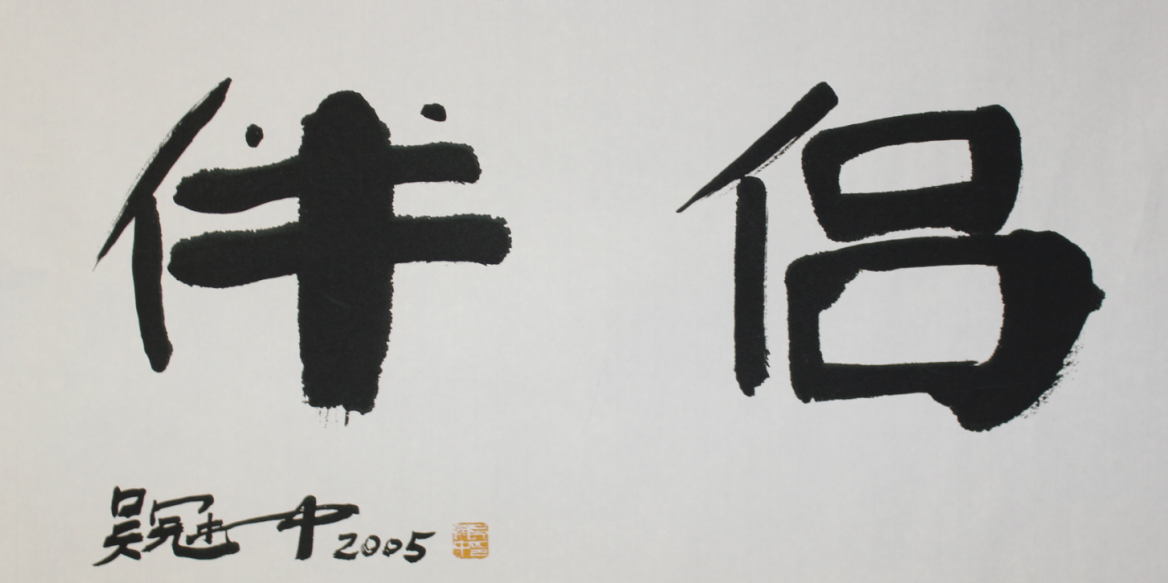 伴侣
吴冠中2005